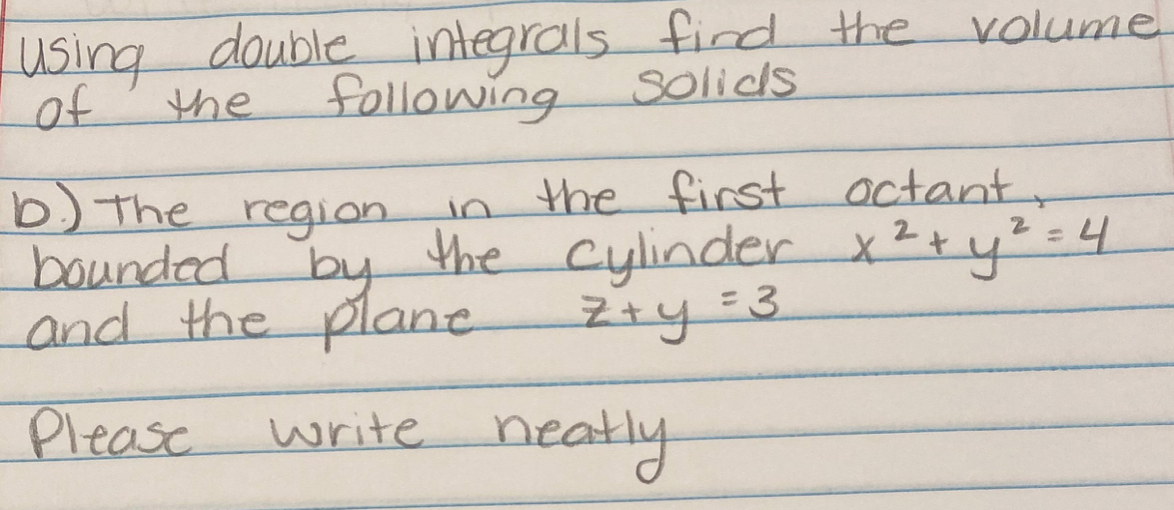 using double integrals find the volume
of the following solids
b.) The region in the first octant,
bounded by the cylinder x² + y² = 4
and the plane z + y = 3
Please write neatly